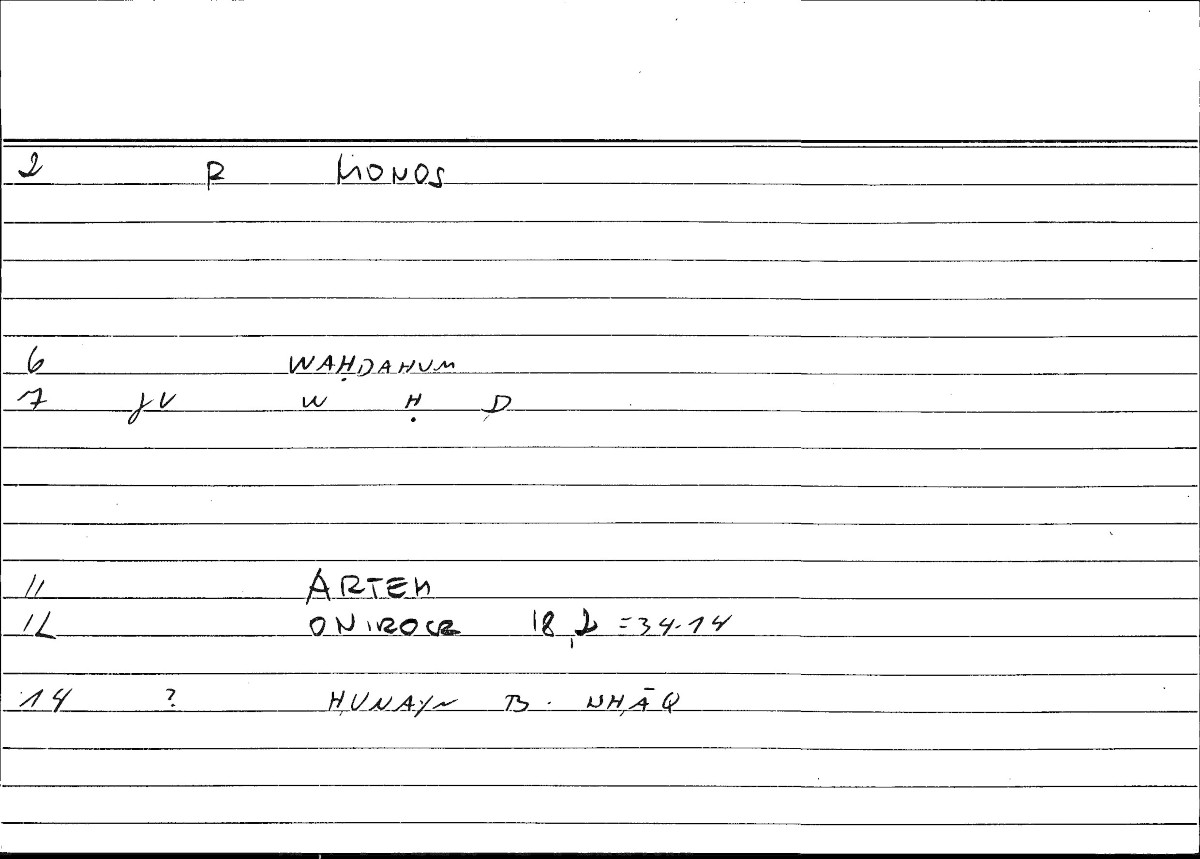 2 R MONOS
6 WAḤDAHUM
7 JV W Ḥ D
11 ARTEM
12 ONIROCR 18,2 = 34.14
14 ? ḤUNAYN B. ISḤĀQ